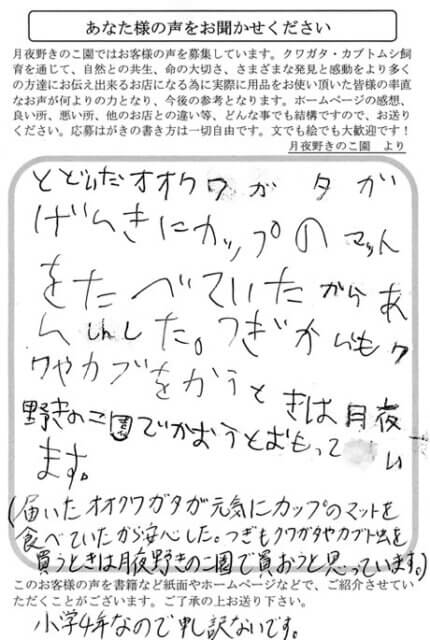 あなた様の声をお聞かせください
月夜野きのこ園ではお客様の声を募集しています。クワガタ・カブトムシ飼
育を通じて、自然との共生、命の大切さ、さまざまな発見と感動をより多く
の方達にお伝え出来るお店になる為に実際に用品をお使い頂いた皆様の率直
なお声が何よりの力となり、今後の参考となります。ホームページの感想、
良い所、悪い所、他のお店との違い等、どんな事でも結構ですので、お送り
ください。応募はがきの書き方は一切自由です。文でも絵でも大歓迎です！
月夜野きのこ園　より
とどいたオオクワガタが
げんきにカップのマット
をたべていたからあ
んしんした。つぎからもク
ワやカブをかうときは月夜
野きのこ園でかおうとおもってい
ます。
(届いたオオクワガタが元気にカップのマットを
食べていたから安心した。つぎもクワガタやカブト虫を
買うときは月夜野きのこ園で買おうと思っています。)
このお客様の声を書籍など紙面やホームページなどで、ご紹介させてい
ただくことがございます。ご了承の上お送り下さい。
小学4年なので申し訳ないです。